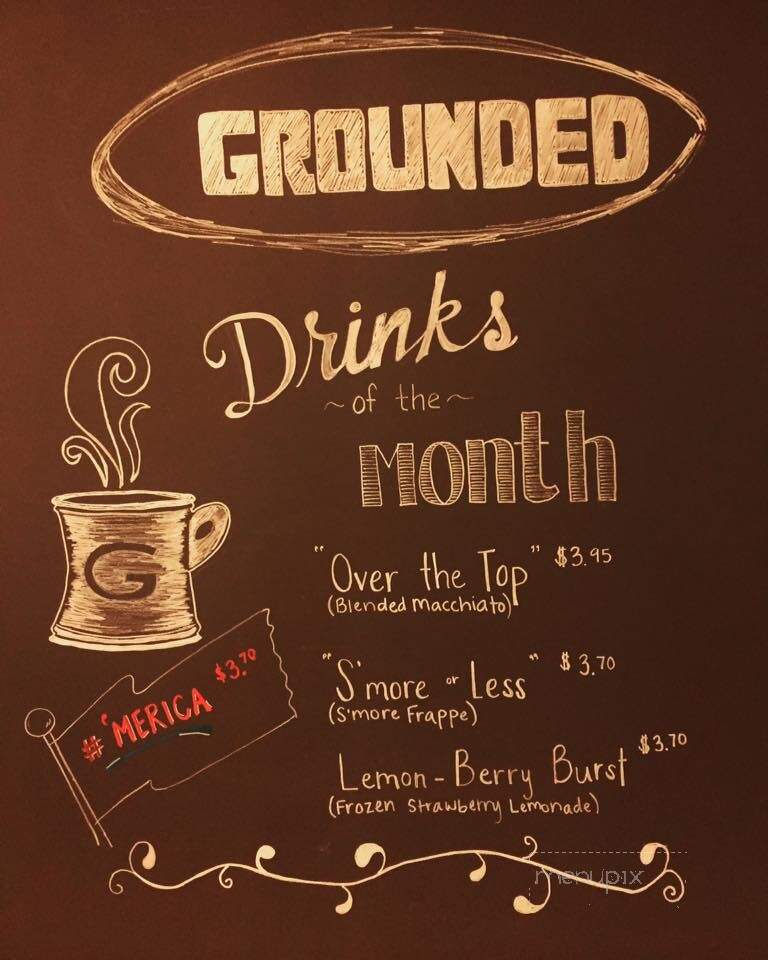 GROUNDED
Drinks
~of the~
Month
G
"Over the Top" $3.95
(Blended Macchiato)
"S'more or Less" $3.70
(S'more Frappe)
#'MERICA $3.70
Lemon-Berry Burst $3.70
(Frozen Strawberry Lemonade)
menupix